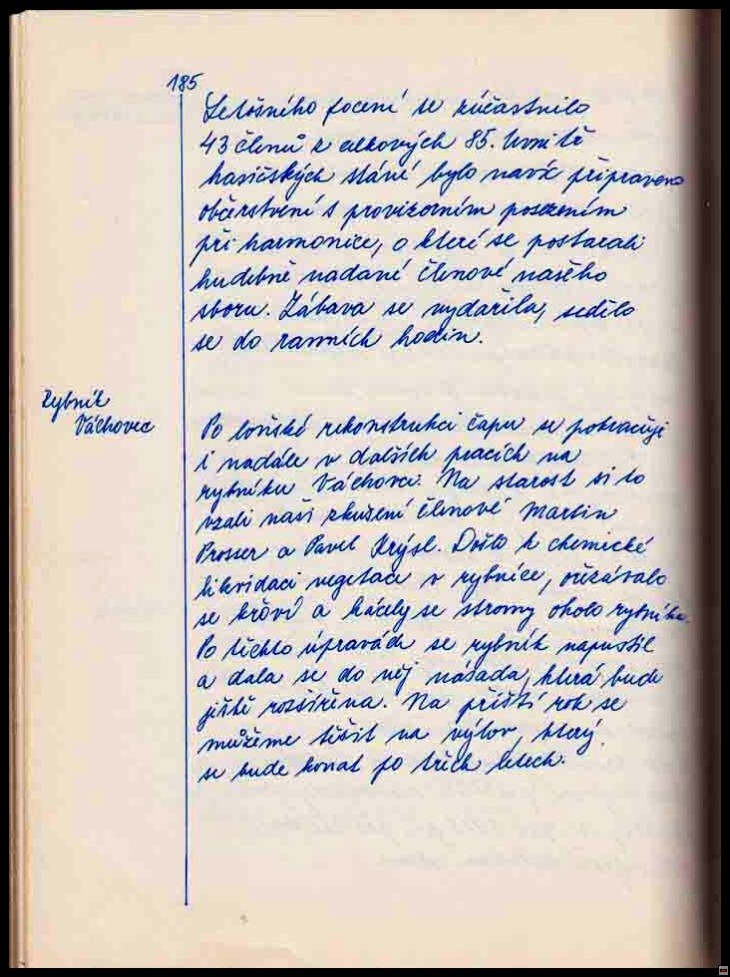 185
Letošního focení se zúčastnilo
43 členů z celkových 85. Uvnitř
hasičských stání bylo navíc připraveno
občerstvení s provizorním posezením
při harmonice, o které se postarali
hudebně nadané členové našeho
sboru. Zábava se vydařila, sedělo
se do ranních hodin.
Rybník
Váchovec
Po loňské rekonstrukci čapu se pokračuje
i nadále v dalších pracích na
rybníku Váchovec. Na starost si to
vzali naši zkušení členové Martin
Prosser a Pavel Krýsl. Došlo k chemické
likvidaci vegetace v rybníce, ořezávalo
se křoví a kácely se stromy okolo rybníka.
Po těchto úpravách se rybník napustil
a dala se do něj násada, která bude
ještě rozšířena. Na příští rok se
můžeme těšit na výlov, který
se bude konat po třech letech.